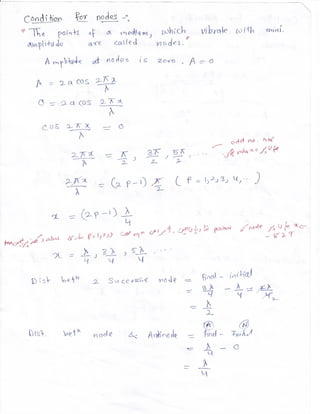 Condition for nodes :-
" The points of a medium, which vibrate with mini.
amplitude are called nodes."
Amplitude at nodes is zero. A = 0
A = 2a cos 2πx/λ
0 = 2a cos 2πx/λ
cos 2πx/λ = 0
2πx/λ = π/2, 3π/2, 5π/2, ....
odd no. has
2πx/λ = (2p-1) π/2 ( P = 1,2,3,4,.. )
x = (2p-1) λ/4
x = λ/4, 3λ/4, 5λ/4, ...
Dist betn 2 Successive node = final - initial
= 3λ/4 - λ/4 = 2λ/4
= λ/2
(A) (N)
Dist. betn node & Antinode = final - Initial
= λ/4 - 0
= λ/4